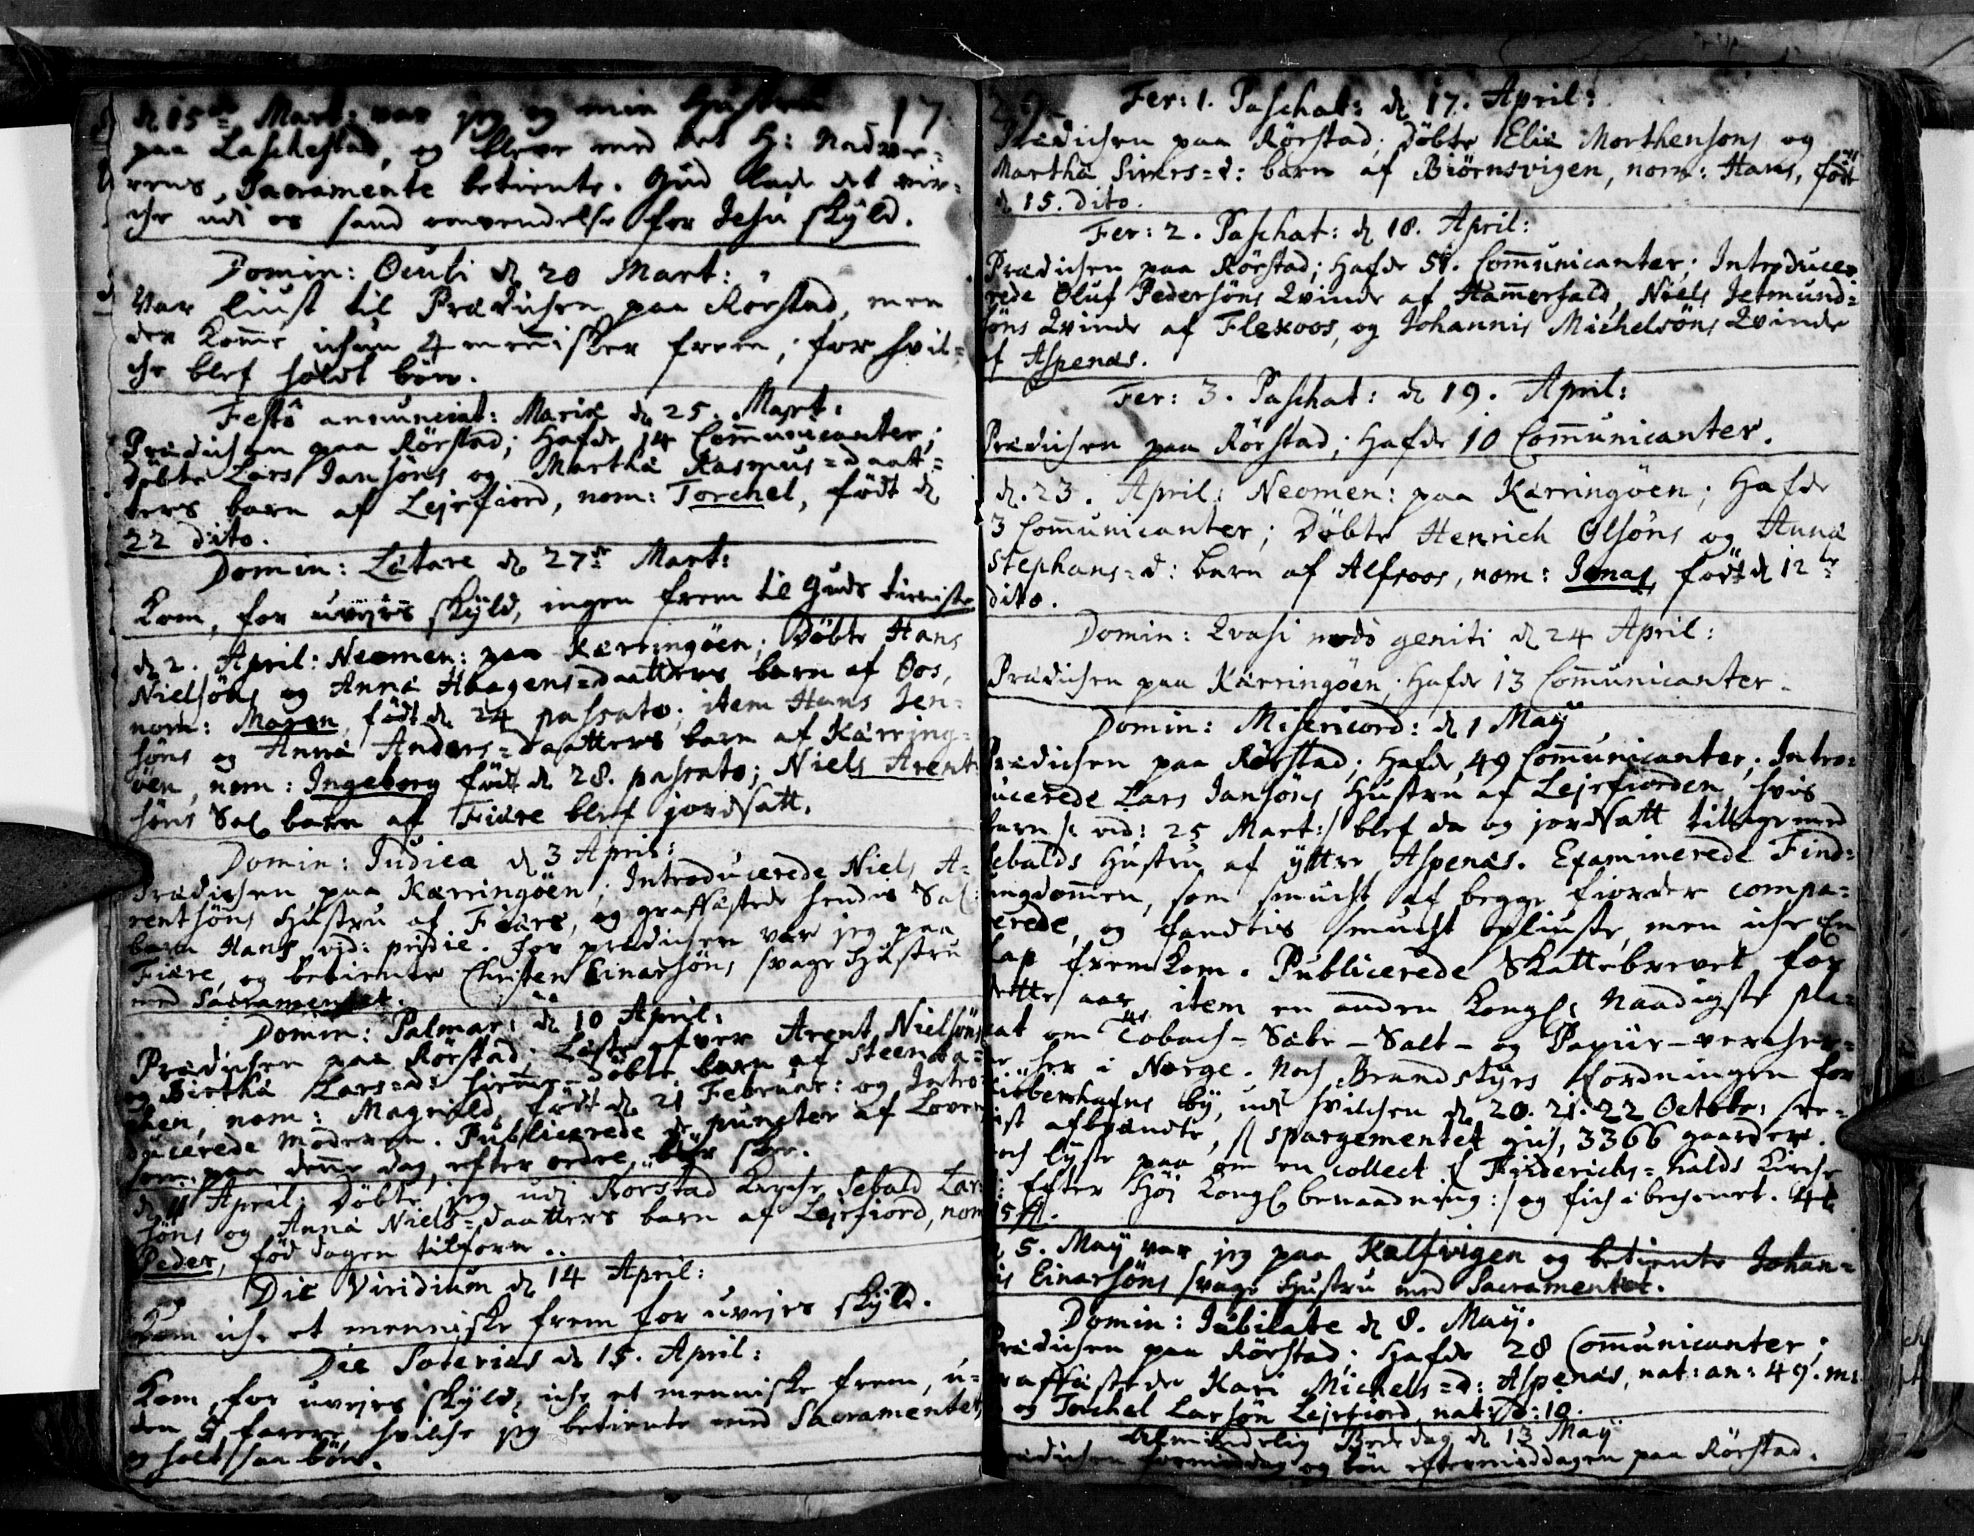 d 15de Mart: var jeg og min Hustru 17
paa Laschestad, og bleve med det H: Nadve-
rens Sacramente betiente. Gud lade det vir-
che udi os sand omvendelse for Jesu skyld.
Domin: Oculi d 20 Mart:
Var liust til Prædichen paa Rørstad, men
der komme ichun 4 mennisker frem, for hvil-
che blef holdt bøn.
Festo annunciat: Mariæ d 25. Mart:
Prædichen paa Rørstad; Hafde 14 Communicanter;
døbte Lars Jansøns og Martha Rasmus=daat-
ters barn af Lejrfiord, nom: Torchel, født d
22 dito.
Domin: Lætare d 27de Mart:
Kom, for uvejrs skyld, ingen frem til Guds tieniste
d 2. April: Neomen: paa Kærringøen; Døbte Hans
Nielsøns og Anna Haagens=daatters barn af Oos,
nom: Maren, født d 24 passato; item Hans Jen-
søns og Anna Anders=daatters barn af Kærring-
øen, nom: Ingeborg født d 28. passato; Niels Arent-
søns Sal barn af Fiære blef jordsatt.
Domin: Judica d 3 April:
Prædichen paa Kærringøen; Introducerede Niels A-
rentsøns Hustru af Fiære, og graffæstede hendes Sal:
barn Hans vid: pridie. For prædichen var jeg paa
Fiære, og betiente Christen Einarsøns svage Hustru
med Sacramentet.
Domin: Palmar: d 10 April:
Prædichen paa Rørstad; Læste ofver Arent Nielsøns
og Birtha Lars=d: hiemme=døbte barn af Steenba-
chen, nom: Magnild, født d 21 Februar: og Intro-
ducerede Moderen. Publicerede de puncter af Loven
som paa denne dag, efter ordre, bør skee.
d 11 April: Døbte jeg udi Rørstad Kirche Sebald Lar-
søns og Anna Niels=daatters barn af Lejrfiord, nom
Peder, fød dagen tilforn.
Die Viridium d 14 April:
Kom iche et menniske frem for uvejrs skyld.
Die Soterias d 15. April:
Kom, for uvejrs skyld, iche et menniske frem, u-
den 5 farere, hvilche jeg betiente med Sacramentet,
og holdt saa bøn.
Fer: 1. Paschat: d 17. April:
Prædichen paa Rørstad; Døbte Elie Morthensøns og
Martha Sivers=d: barn af Biørnsvigen, nom: Hans, født
d 15. dito.
Fer: 2. Paschat: d 18. April:
Prædichen paa Rørstad; Hafde 51. Communicanter; Introduce-
rede Oluf Pedersøns Qvinde af Hammerfald, Niels Jetmund-
søns Qvinde af Flexoos, og Johannis Michelsøns Qvinde
af Aspenæs.
Fer: 3. Paschat: d 19. April:
Prædichen paa Rørstad; Hafde 10 Communicanter.
d. 23. April: Neomen: paa Kærringøen; Hafde
3 Communicanter; Døbte Henrich Olsøns og Anna
Stephans=d: barn af Alfsoos, nom: Jonas, født d 12te
dito.
Domin: Qvasi modo geniti d 24 April:
Prædichen paa Kærringøen; Hafde 13 Communicanter.
Domin: Misericord: d 1 May
Prædichen paa Rørstad; Hafde 49 Communicanter; Intro-
ducerede Lars Jansøns Hustru af Lejrfiorden, hvis
barn /: vid: 25 Mart:/ blef da og jordsatt tillige med
Sebalds Hustru af yttre Aspenæs. Examinerede
ungdommen, som smucht af begge fiorder compa-
rerede, og fandtis smucht opliuste, men iche En
Lap fremkom. Publicerede Skattebrevet for
dette aar, item en anden Kongl: Naadigste pla-
cat om Tobach-Sæbe-Salt- og Papiir-
her i Norge. Noch Brandstyrs fordningen for
Kiøbenhafns by, udi hvilchen d 20. 21. 22 Octobr:
afbrændte, spargementet gius, 3366 gaarder.
Noch lyste paa om en collect Friderichs=halds Kirche
Efter Høj Kongl benaadning:/ og fich
15 ß.
d 5. May var jeg paa Kalfvigen og betiente Johan-
nis Einarsøns svage Hustru med Sacramentet.
Domin: Jubilate d 8. May.
Prædichen paa Rørstad; Hafde 28 Communicanter;
graffæstede Kari Michels=d: Aspenæs, nat: an: 49. m:
og Torchel Larsøn Lejrfiord, nat: d: 10.
Almindelig Bededag d 13 May
Prædichen formiddag og bøn eftermiddagen paa Rørstad.